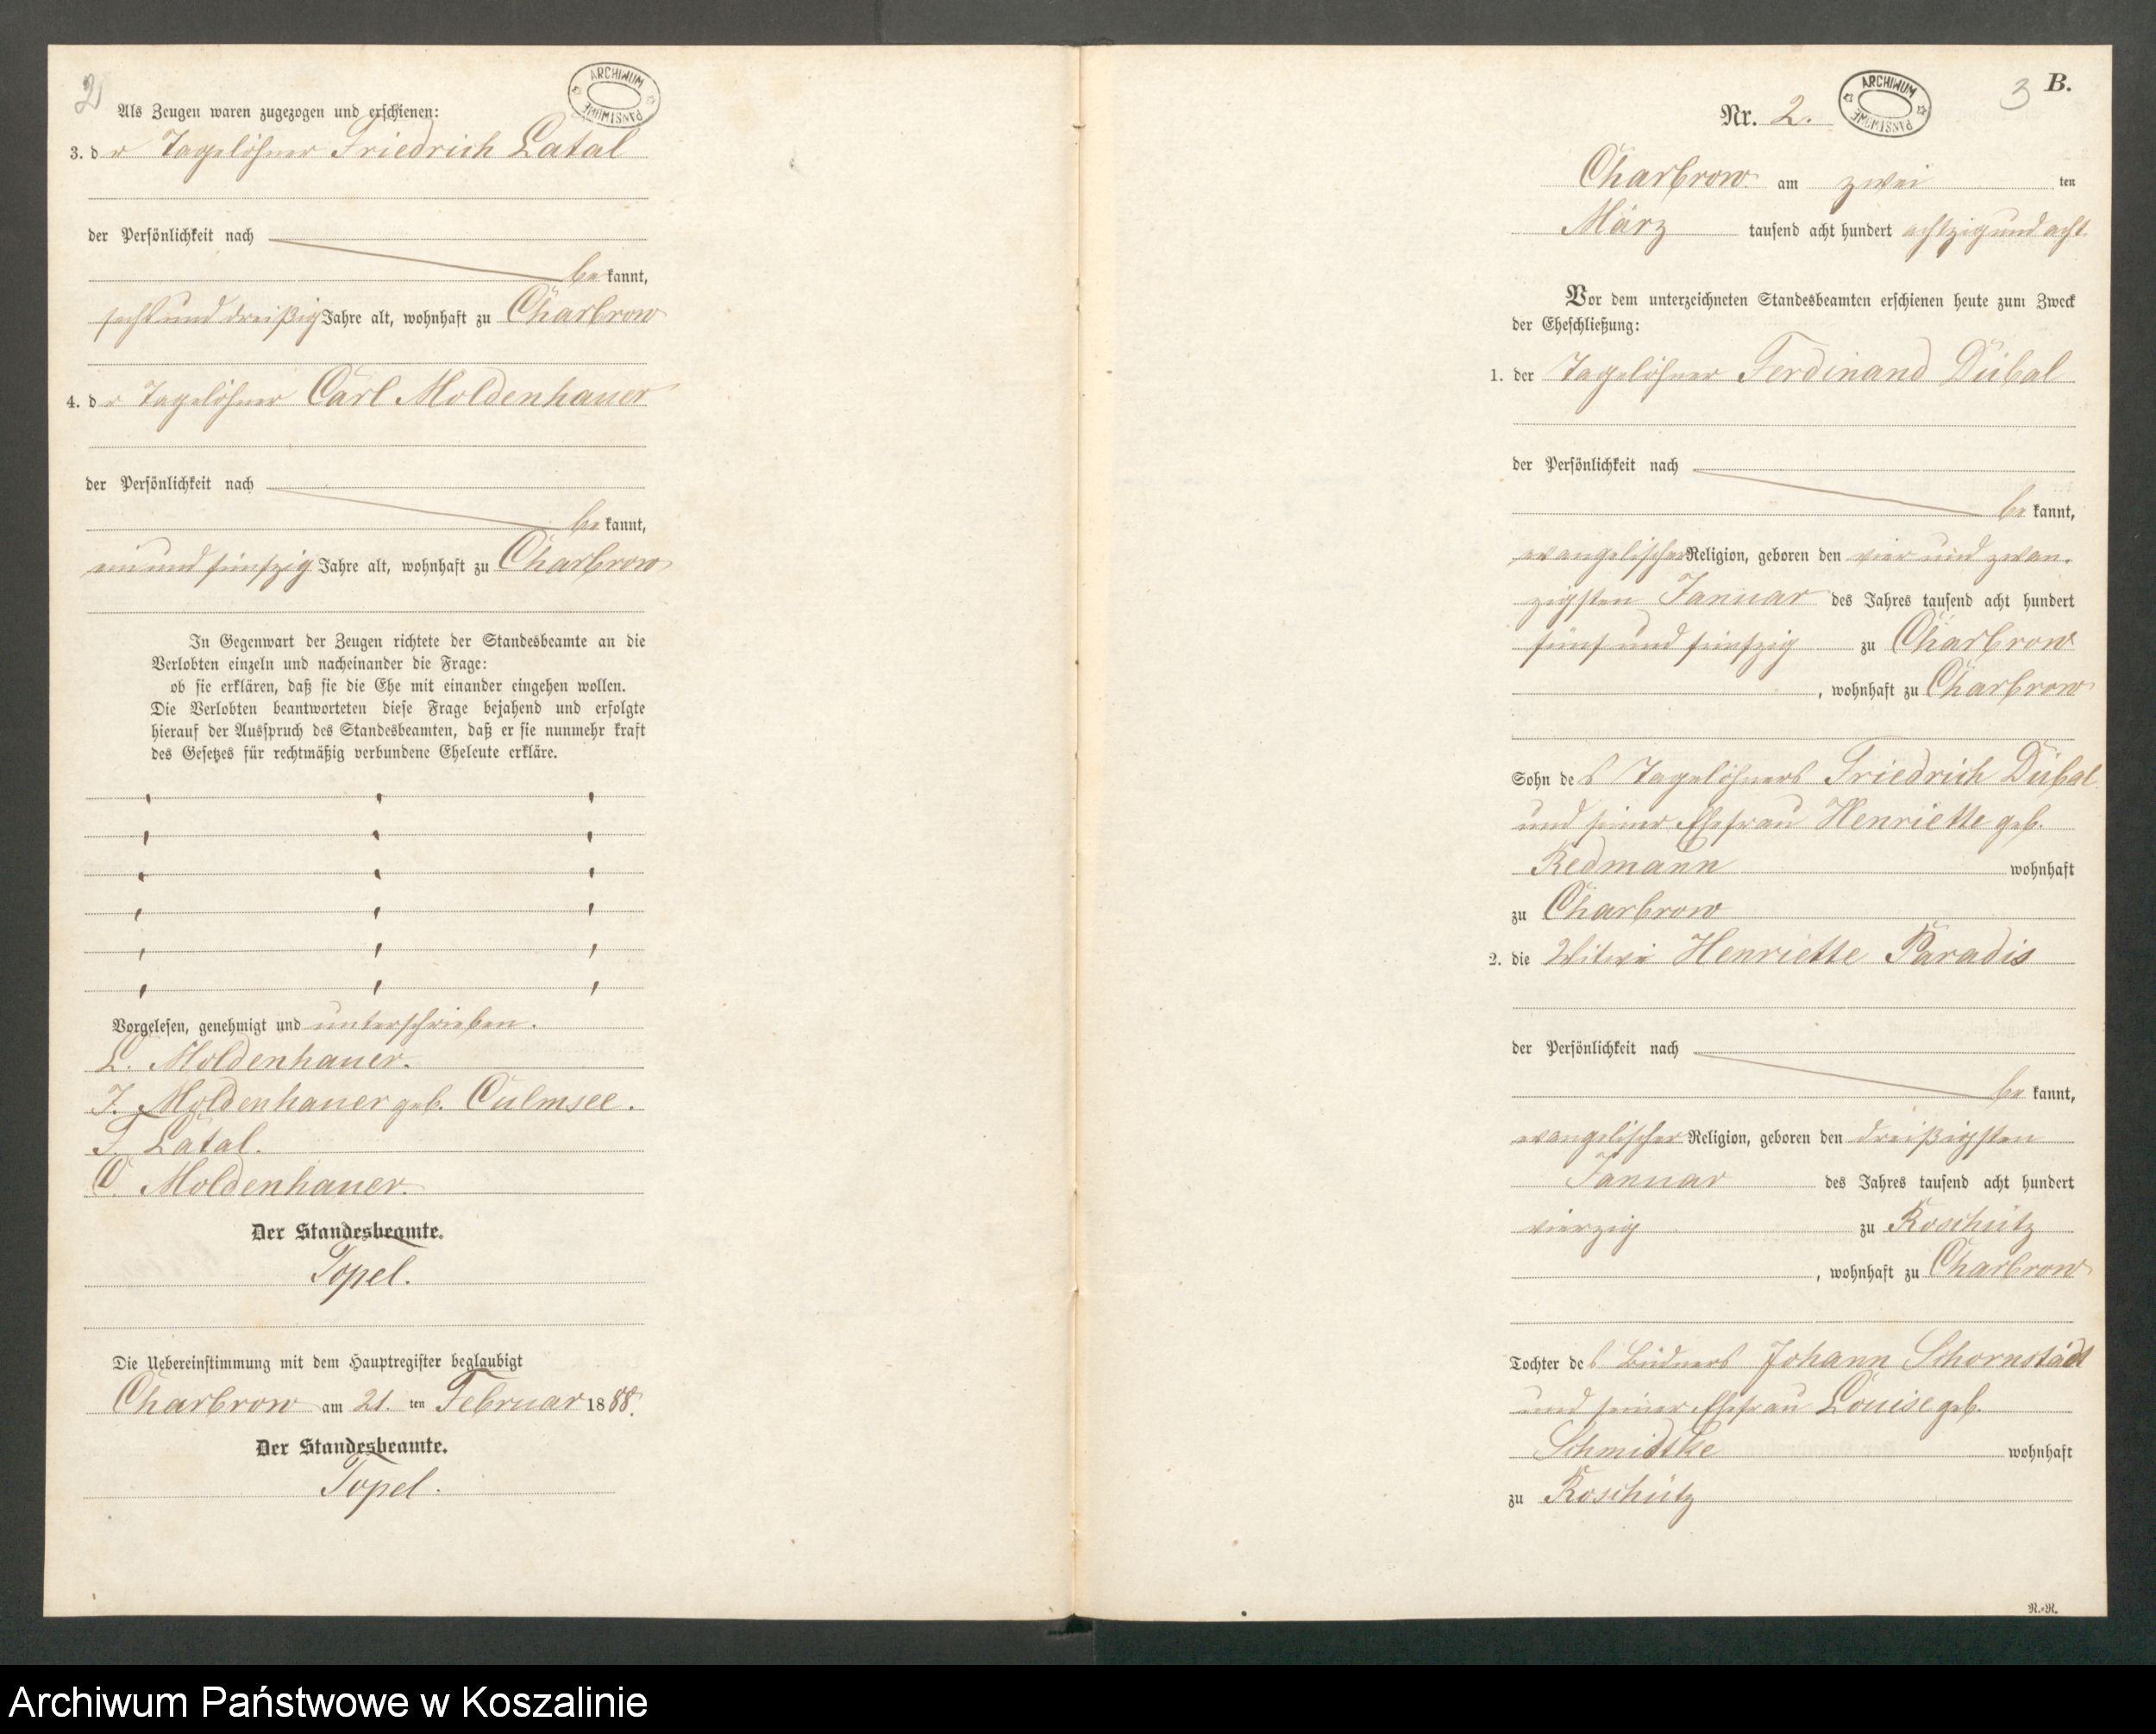 2
ARCHIWUM PAŃSTWOWE
Als Zeugen waren zugezogen und erschienen:
3. der Tagelöhner Friedrich Latal
der Persönlichkeit nach
bekannt,
sechs und dreißig Jahre alt, wohnhaft zu Charbrow
4. der Tagelöhner Carl Moldenhauer
der Persönlichkeit nach
bekannt,
ein und fünfzig Jahre alt, wohnhaft zu Charbrow
In Gegenwart der Zeugen richtete der Standesbeamte an die
Verlobten einzeln und nacheinander die Frage:
ob sie erklären, daß sie die Ehe mit einander eingehen wollen.
Die Verlobten beantworteten diese Frage bejahend und erfolgte
hierauf der Ausspruch des Standesbeamten, daß er sie nunmehr kraft
des Gesetzes für rechtmäßig verbundene Eheleute erkläre.
Vorgelesen, genehmigt und unterschrieben.
L. Moldenhauer.
J. Moldenhauer geb. Culmsee.
F. Latal.
C. Moldenhauer.
Der Standesbeamte.
Topel.
Die Uebereinstimmung mit dem Hauptregister beglaubigt
Charbrow am 21. ten Februar 1888.
Der Standesbeamte.
Topel.
3 B.
ARCHIWUM PAŃSTWOWE
Nr. 2.
Charbrow am zwei ten
März tausend acht hundert achtzig und acht
Vor dem unterzeichneten Standesbeamten erschienen heute zum Zweck
der Eheschließung:
1. der Tagelöhner Ferdinand Dübal
der Persönlichkeit nach
bekannt,
evangelischer Religion, geboren den vier und zwan-
zigsten Januar des Jahres tausend acht hundert
fünf und fünfzig zu Charbrow
, wohnhaft zu Charbrow
Sohn des Tagelöhners Friedrich Dübal
und seiner Ehefrau Henriette geb.
Redmann wohnhaft
zu Charbrow
2. die Witwe Henriette Paradis
der Persönlichkeit nach
bekannt,
evangelischer Religion, geboren den dreißigsten
Januar des Jahres tausend acht hundert
vierzig zu Roschütz
, wohnhaft zu Charbrow
Tochter des Büdners Johann Schornstädt
und seiner Ehefrau Louise geb.
Schmidtke wohnhaft
zu Roschütz
R.-R.
Archiwum Państwowe w Koszalinie